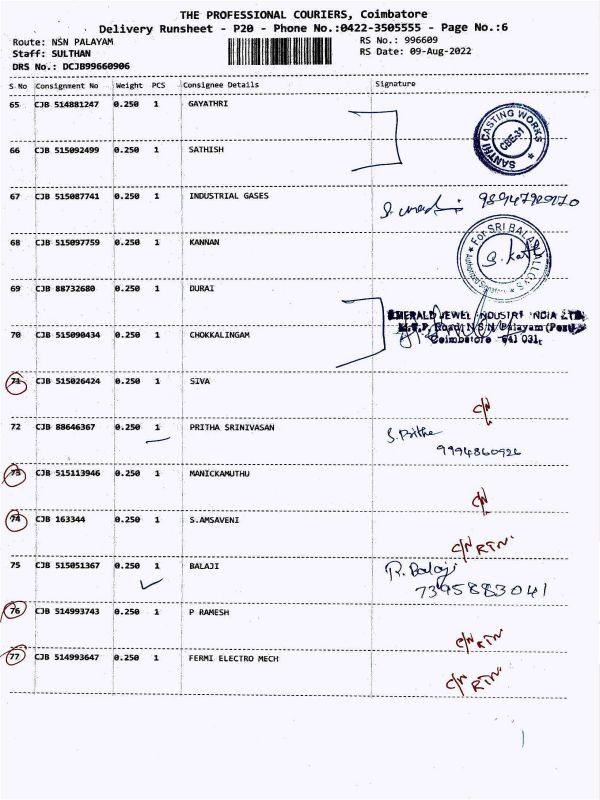 THE PROFESSIONAL COURIERS, Coimbatore
Delivery Runsheet - P20 - Phone No.:0422-3505555 - Page No.:6
Route: NSN PALAYAM RS No.: 996609
Staff: SULTHAN RS Date: 09-Aug-2022
DRS No.: DCJB99660906
S No Consignment No Weight PCS Consignee Details Signature
65 CJB 514881247 0.250 1 GAYATHRI
SANTHI CASTING WORKS
CBE-31
66 CJB 515092499 0.250 1 SATHISH
67 CJB 515087741 0.250 1 INDUSTRIAL GASES
68 CJB 515097759 0.250 1 KANNAN
For SRI BALA ALLOYS
69 CJB 88732680 0.250 1 DURAI
EMERALD JEWEL INDUSTRY INDIA LTD
70 CJB 515090434 0.250 1 CHOKKALINGAM
M.T.P. Road, N.S.N. Palayam (Post)
Coimbatore - 641 031.
71 CJB 515026424 0.250 1 SIVA
C/N
72 CJB 88646367 0.250 1 PRITHA SRINIVASAN
S. Pritha
73 CJB 515113946 0.250 1 MANICKAMUTHU
C/N
74 CJB 163344 0.250 1 S.AMSAVENI
C/N RTN
75 CJB 515051367 0.250 1 BALAJI R. Balaji
7395883041
76 CJB 514993743 0.250 1 P RAMESH
C/N RTN
77 CJB 514993647 0.250 1 FERMI ELECTRO MECH
C/N RTN